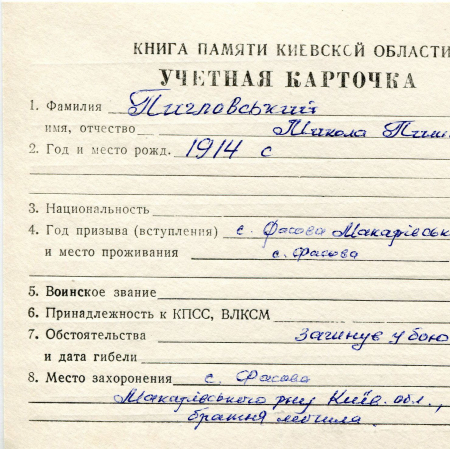 КНИГА ПАМЯТИ КИЕВСКОЙ ОБЛАСТИ
УЧЕТНАЯ КАРТОЧКА
1. Фамилия
имя, отчество Микола
2. Год и место рожд. 1914 с
3. Национальность
4. Год призыва (вступления) с. Фасова Макарівськ
и место проживания с. Фасова
5. Воинское звание
6. Принадлежность к КПСС, ВЛКСМ
7. Обстоятельства загинув у бою
и дата гибели
8. Место захоронения с. Фасова
Макарівського р-ну Київ. обл.,
братня могила.